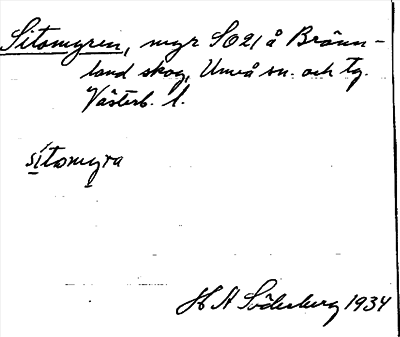 Sitomyren, myr SO 21 å Bränn-
land skog, Umeå sn. och tg.
Västerb. l.
sitomyra
H A Söderberg 1934